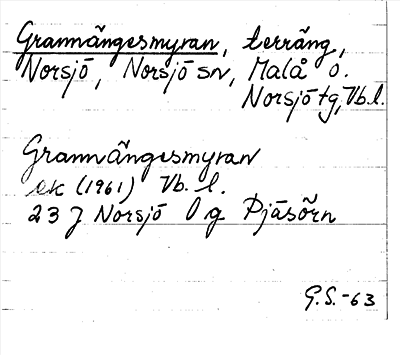 Grannängesmyran, terräng,
Norsjö, Norsjö sn, Malå o.
Norsjö tg, Vb.l.
Grannängesmyran
ek (1961) Vb. l.
23 J Norsjö 0 g Pjäsörn
G.S.-63